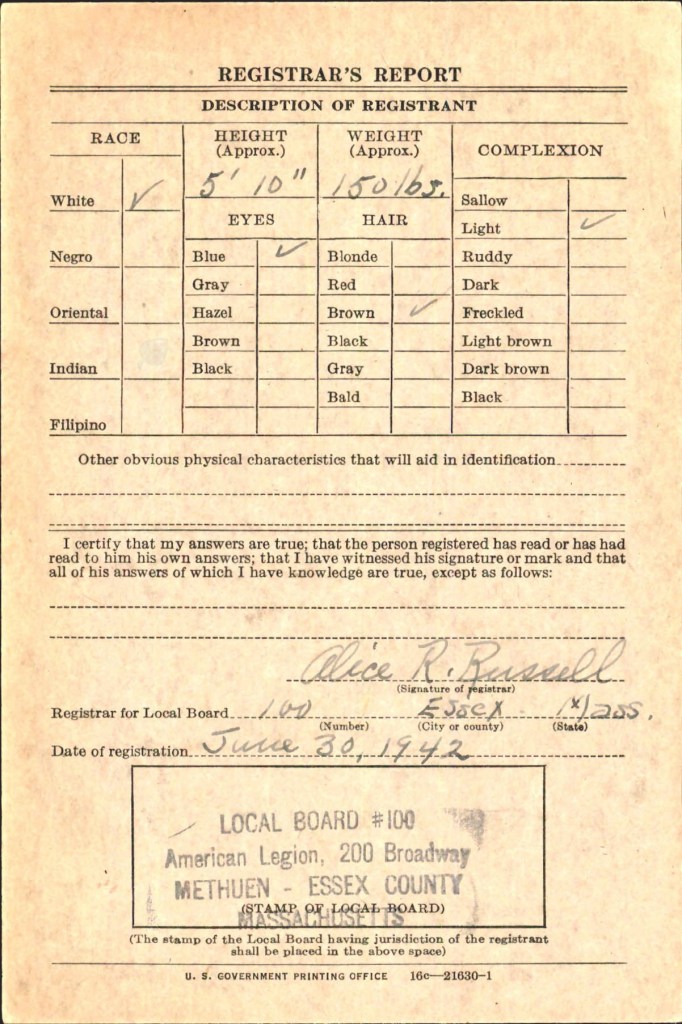 REGISTRAR'S REPORT
DESCRIPTION OF REGISTRANT
RACE
HEIGHT
(Approx.)
WEIGHT
(Approx.)
COMPLEXION
5' 10"
150 lbs.
White ✓
Negro
Oriental
Indian
Filipino
EYES
Blue ✓
Gray
Hazel
Brown
Black
HAIR
Blonde
Red
Brown ✓
Black
Gray
Bald
Sallow
Light ✓
Ruddy
Dark
Freckled
Light brown
Dark brown
Black
Other obvious physical characteristics that will aid in identification
I certify that my answers are true; that the person registered has read or has had
read to him his own answers; that I have witnessed his signature or mark and that
all of his answers of which I have knowledge are true, except as follows:
Alice R. Russell
(Signature of registrar)
Registrar for Local Board 100 Essex Mass.
(Number) (City or county) (State)
Date of registration June 30, 1942
LOCAL BOARD #100
American Legion, 200 Broadway
METHUEN - ESSEX COUNTY
(STAMP OF LOCAL BOARD)
MASSACHUSETTS
(The stamp of the Local Board having jurisdiction of the registrant
shall be placed in the above space)
U. S. GOVERNMENT PRINTING OFFICE 16c—21630-1